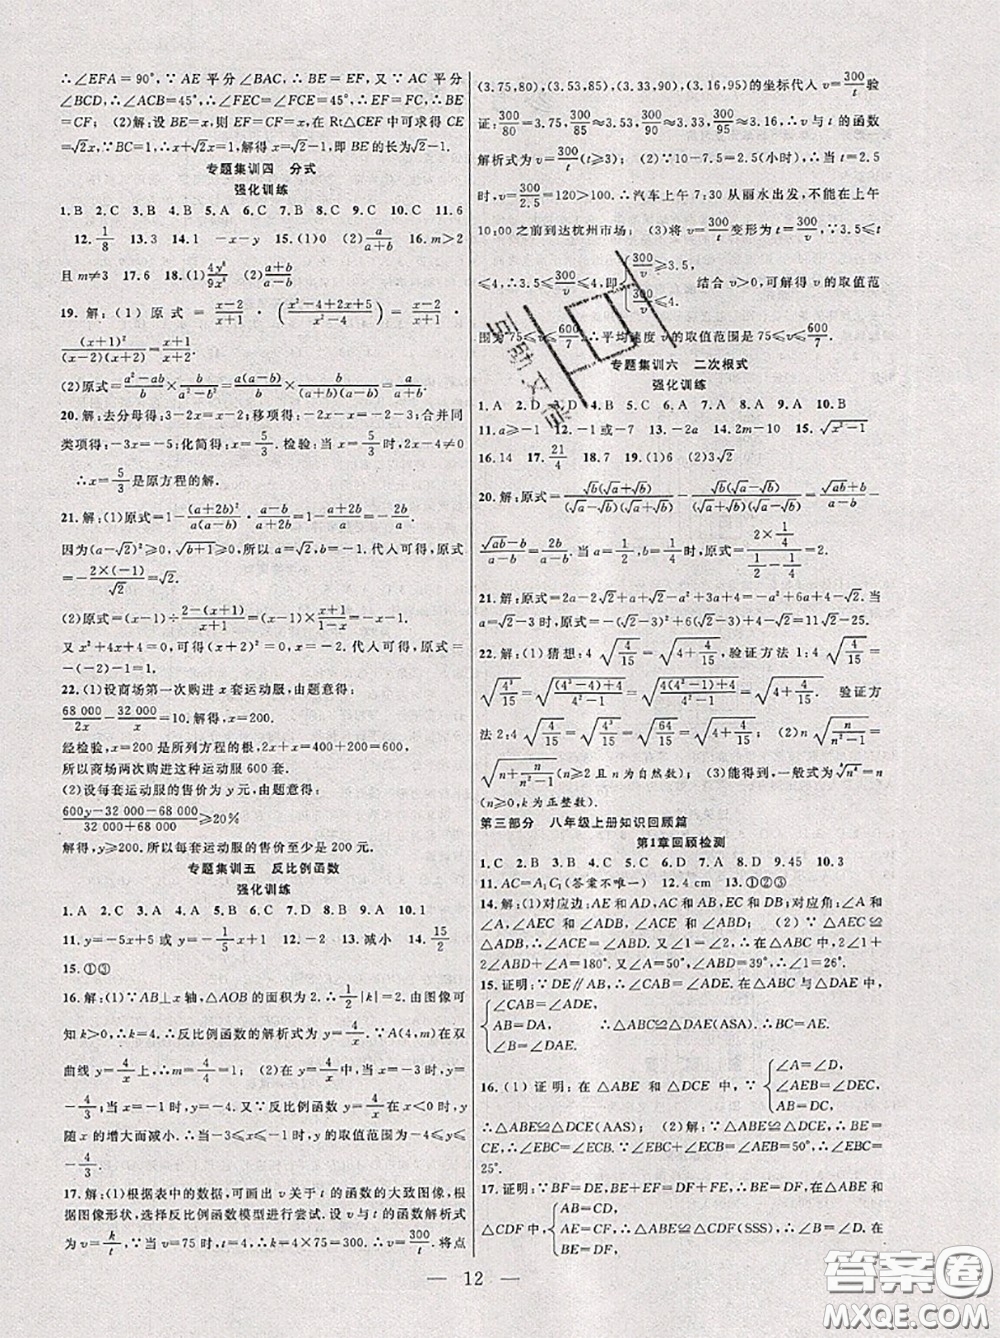 ∴∠EFA=90°,∵AE平分∠BAC,∴BE=EF,又∵AC平分
∠BCD,∴∠ACB=45°,∠FEC=∠FCE=45°,∴EF=FC,∴BE
=CF; (2)解:设BE=x,则EF=CF=x,在Rt△CEF中可求得CE
=√2x,∵BC=1,∴x+√2x=1,解得x=√2-1,即BE的长为√2-1.
专题集训四 分式
强化训练
1.B 2.C 3.B 4.B 5.A 6.C 7.B 8.B 9.C 10.C 11.6
12.1/8 13.3 14.1 -x-y 15.(1)0 (2)a/(a+b) 16.m>2
且m≠3 17.6 18.(1)4y⁸/9x⁶ (2)(a+b)/(a-b)
19.解:(1)原式=(x-2)/(x+1)·((x²-4+2x+5)/(x²-4))=(x-2)/(x+1)·
(x+1)²/((x-2)(x+2))=(x+1)/(x+2).
(2)原式=(a²-ab)/b×b/(a²-b²)=a(a-b)/b×b/((a+b)(a-b))=a/(a+b).
20.解:去分母得:3-2x=x-2;移项得:-2x-x=-2-3;合并同
类项得:-3x=-5;化简得:x=5/3.检验:当x=5/3时,2x-4≠0
∴x=5/3是原方程的解.
21.解:(1)原式=1-(a+2b)²/(a(a-b))·(a-b)/(a+2b)=1-(a+2b)/a=-2b/a.
因为(a-√2)²≥0,√(b+1)≥0,所以a=√2,b=-1.代入可得,原式
=-2×(-1)/√2=√2.
(2)原式=(x-1)÷(2-(x+1))/(x+1)=(x-1)×(x+1)/(1-x)=-x-1.
又x²+4x+4=0,可得(x+2)²=0,x=-2.代入可得,原式=
-(-2)-1=1.
22.(1)设商场第一次购进x套运动服,由题意得:
68 000/2x-32 000/x=10.解得,x=200.
经检验,x=200是所列方程的根,2x+x=400+200=600,
所以商场两次购进这种运动服600套.
(2)设每套运动服的售价为y元,由题意得:
(600y-32 000-68 000)/(32 000+68 000)≥20%
解得,y≥200.所以每套运动服的售价至少是200元.
专题集训五 反比例函数
强化训练
1.A 2.C 3.A 4.B 5.A 6.C 7.D 8.B 9.A 10.1
11.y=-5x+5或y=-1/5x+1 12.-2 13.减小 14.15/2
15.①③
16.解:(1)∵AB⊥x轴,△AOB的面积为2.∴1/2|k|=2.由图像可
知k>0,∴k=4.∴反比例函数的解析式为y=4/x.∵A(4,m)在双
曲线y=4/x上,∴m=4/4=1. (2)当x=-3时,y=-4/3,∴y=
-4/3;当x=-1时,y=-4.又∵反比例函数y=4/x在x<0时,y
随x的增大而减小.∴当-3≤x≤-1时,y的取值范围为-4≤y≤
-4/3.
17.解:(1)根据表中的数据,可画出v关于t的函数的大致图像,根
据图像形状,选择反比例函数模型进行尝试.设v与t的函数解析式
为v=k/t,∵当v=75时,t=4,∴k=4×75=300.∴v=300/t.将点
(3.75,80),(3.53,85),(3.33,90),(3.16,95)的坐标代入v=300/t验
证:300/80=3.75,300/85≈3.53,300/90≈3.33,300/95≈3.16,∴v与t的函数
解析式为v=300/t(t≥3); (2)∵10-7.5=2.5(小时),∴当t=2.5
时,v=300/2.5=120>100.∴汽车上午7:30从丽水出发,不能在上午
10:00之前到达杭州市场; (3)将v=300/t变形为t=300/v,∵3.5≤t
≤4,∴3.5≤300/v≤4,即{300/v≥3.5, 300/v≤4. 结合v>0,可解得v的取值范
围为75≤v≤600/7.∴平均速度v的取值范围是75≤v≤600/7.
专题集训六 二次根式
强化训练
1.A 2.A 3.D 4.D 5.C 6.C 7.A 8.A 9.A 10.B
11.a≥-1 12.-1或-7 13.-2a 14.2m-10 15.√(x²-1)
16.14 17.21/4 18.7 19.(1)6 (2)3√2
20.解:原式=√b(√a+√b)/((√a-√b)(√a+√b))-√b(√a-√b)/((√a+√b)(√a-√b))=(√ab+b)/(a-b)-
(√ab-b)/(a-b)=2b/(a-b).当a=1/2,b=1/4时,原式=(2×1/4)/(1/2-1/4)=2.
21.解:原式=2a-2√2+√2a-a²+3+1=-a²+6a+4-√2.当
a=√2-3时,原式=-(√2-3)²+6(√2-3)+4-√2=11√2-25.
22.解:(1)猜想:4√(4/15)=√(4+4/15),验证方法1:4√(4/15)
=√(4³/15)=√((4³-4+4)/(4²-1))=√((4(4²-1)+4)/(4²-1))=√(4+4/15). 验证方
法2:4√(4/15)=√(4³/15)=√(64/15)=√(4+4/15); (2)n√(n/(n²-1))=
√(n+n/(n²-1))(n≥2且n为自然数); (3)能得到,一般式为ᵏ√nᵏ=n
(n≥0,k为正整数).
第三部分 八年级上册知识回顾篇
第1章回顾检测
1.C 2.C 3.D 4.C 5.A 6.C 7.B 8.D 9.45 10.3
11.AC=A₁C₁(答案不唯一) 12.4 cm 13.①②③
14.解:(1)对应边:AE和AD,AC和AB,EC和DB;对应角:∠A和
∠A,∠AEC和∠ADB,∠ACE和∠ABD; (2)∵△AEC≌
△ADB,∴∠ACE=∠ABD.又∠1=∠2,∴在△ABC中,2∠1+
2∠ABD+∠A=180°.又∠A=50°,∠ABD=39°,∴∠1=26°.
15.证明:∵DE∥AB,∴∠CAB=∠EDA.在△ABC与△DAE中,
{∠CAB=∠EDA,
AB=DA,
∠B=∠DAE, ∴△ABC≌△DAE(ASA).∴BC=AE.
16.(1)证明:在△ABE和△DCE中,∵{∠A=∠D,
∠AEB=∠DEC,
AB=DC,
∴△ABE≌△DCE(AAS); (2)解:∵△ABE≌△DCE,∴BE=
CE,∴∠EBC=∠ECB,∵∠EBC+∠ECB=∠AEB=50°,∴∠EBC=
25°.
17.证明:∵BF=DE,∴BF+EF=DF+FE,∴BE=DF.在△ABE和
△CDF中,{AB=CD,
AE=CF,
BE=DF, ∴△ABE≌△CDF(SSS),∴∠B=∠D.在
— 12 —
互助文档
答案圈
MXQE.COM